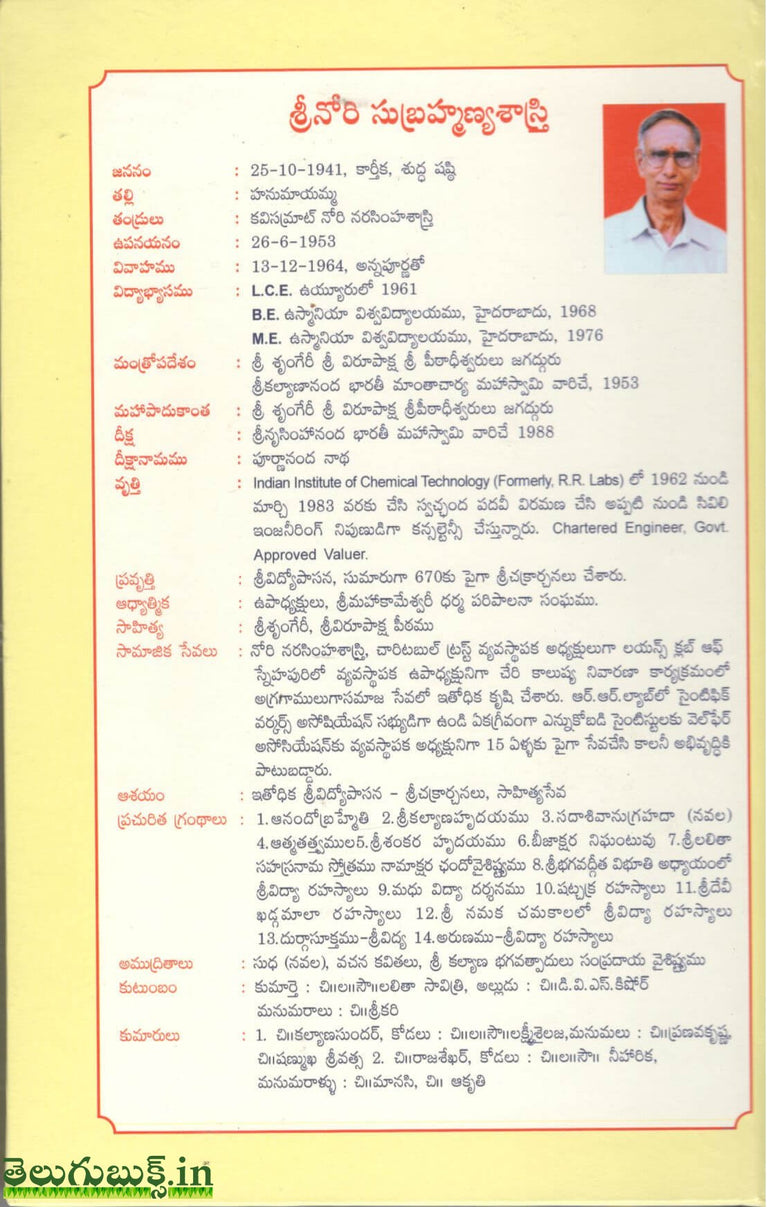 శ్రీనోరి సుబ్రహ్మణ్యశాస్త్రి
జననం : 25-10-1941, కార్తీక, శుద్ధ షష్ఠి
తల్లి : హనుమాయమ్మ
తండ్రులు : కవిసమ్రాట్ నోరి నరసింహశాస్త్రి
ఉపనయనం : 26-6-1953
వివాహము : 13-12-1964, అన్నపూర్ణతో
విద్యాభ్యాసము : L.C.E. ఉయ్యూరులో 1961
B.E. ఉస్మానియా విశ్వవిద్యాలయము, హైదరాబాదు, 1968
M.E. ఉస్మానియా విశ్వవిద్యాలయము, హైదరాబాదు, 1976
మంత్రోపదేశం : శ్రీ శృంగేరీ శ్రీ విరూపాక్ష శ్రీ పీఠాధీశ్వరులు జగద్గురు
శ్రీకల్యాణానంద భారతీ మాంతాచార్య మహాస్వామి వారిచే, 1953
మహాపాదుకాంత : శ్రీ శృంగేరీ శ్రీ విరూపాక్ష శ్రీపీఠాధీశ్వరులు జగద్గురు
దీక్ష : శ్రీనృసింహానంద భారతీ మహాస్వామి వారిచే 1988
దీక్షానామము : పూర్ణానంద నాథ
వృత్తి : Indian Institute of Chemical Technology (Formerly, R.R. Labs) లో 1962 నుండి
మార్చి 1983 వరకు చేసి స్వచ్ఛంద పదవీ విరమణ చేసి అప్పటి నుండి సివిలి
ఇంజనీరింగ్ నిపుణుడిగా కన్సల్టెన్సీ చేస్తున్నారు. Chartered Engineer, Govt.
Approved Valuer.
ప్రవృత్తి : శ్రీవిద్యోపాసన, సుమారుగా 670కు పైగా శ్రీచక్రార్చనలు చేశారు.
ఆధ్యాత్మిక : ఉపాధ్యక్షులు, శ్రీమహాకామేశ్వరీ ధర్మ పరిపాలనా సంఘము.
సాహిత్య : శ్రీశృంగేరీ, శ్రీవిరూపాక్ష పీఠము
సామాజిక సేవలు : నోరి నరసింహశాస్త్రి, చారిటబుల్ ట్రస్ట్ వ్యవస్థాపక అధ్యక్షులుగా లయన్స్ క్లబ్ ఆఫ్
స్నేహపురిలో వ్యవస్థాపక ఉపాధ్యక్షునిగా చేరి కాలుష్య నివారణా కార్యక్రమంలో
అగ్రగాములుగాసమాజ సేవలో ఇతోధిక కృషి చేశారు. ఆర్.ఆర్.ల్యాబ్‌లో సైంటిఫిక్
వర్కర్స్ అసోషియేషన్ సభ్యుడిగా ఉండి ఏకగ్రీవంగా ఎన్నుకోబడి సైంటిస్టులకు వెల్‌ఫేర్
అసోసియేషన్‌కు వ్యవస్థాపక అధ్యక్షునిగా 15 ఏళ్ళకు పైగా సేవచేసి కాలనీ అభివృద్ధికి
పాటుబడ్డారు.
ఆశయం : ఇతోధిక శ్రీవిద్యోపాసన – శ్రీచక్రార్చనలు, సాహిత్యసేవ
ప్రచురిత గ్రంథాలు : 1.ఆనందోబ్రహ్మేతి 2.శ్రీకల్యాణహృదయము 3.సదాశివానుగ్రహదా (నవల)
4.ఆత్మతత్త్వముల5.శ్రీశంకర హృదయము 6.బీజాక్షర నిఘంటువు 7.శ్రీలలితా
సహస్రనామ స్తోత్రము నామాక్షర ఛందోవైశిష్ట్యము 8.శ్రీభగవద్గీత విభూతి అధ్యాయంలో
శ్రీవిద్యా రహస్యాలు 9.మధు విద్యా దర్శనము 10.షట్చక్ర రహస్యాలు 11.శ్రీదేవీ
ఖడ్గమాలా రహస్యాలు 12.శ్రీ నమక చమకాలలో శ్రీవిద్యా రహస్యాలు
13.దుర్గాసూక్తము–శ్రీవిద్య 14.అరుణము–శ్రీవిద్యా రహస్యాలు
అముద్రితాలు : సుధ (నవల), వచన కవితలు, శ్రీ కల్యాణ భగవత్పాదులు సంప్రదాయ వైశిష్ట్యము
కుటుంబం : కుమార్తె : చి॥ల॥సౌ॥లలితా సావిత్రి, అల్లుడు : చి॥డి.వి.ఎస్.కిషోర్
మనుమరాలు : చి॥శ్రీకరి
కుమారులు : 1. చి॥కల్యాణసుందర్, కోడలు : చి॥ల॥సౌ॥లక్ష్మీశైలజ,మనుమలు : చి॥ప్రణవకృష్ణ,
చి॥షణ్ముఖ శ్రీవత్స 2. చి॥రాజశేఖర్, కోడలు : చి॥ల॥సౌ॥ నీహారిక,
మనుమరాళ్ళు : చి॥మానసి, చి॥ ఆకృతి
తెలుగుబుక్స్.in